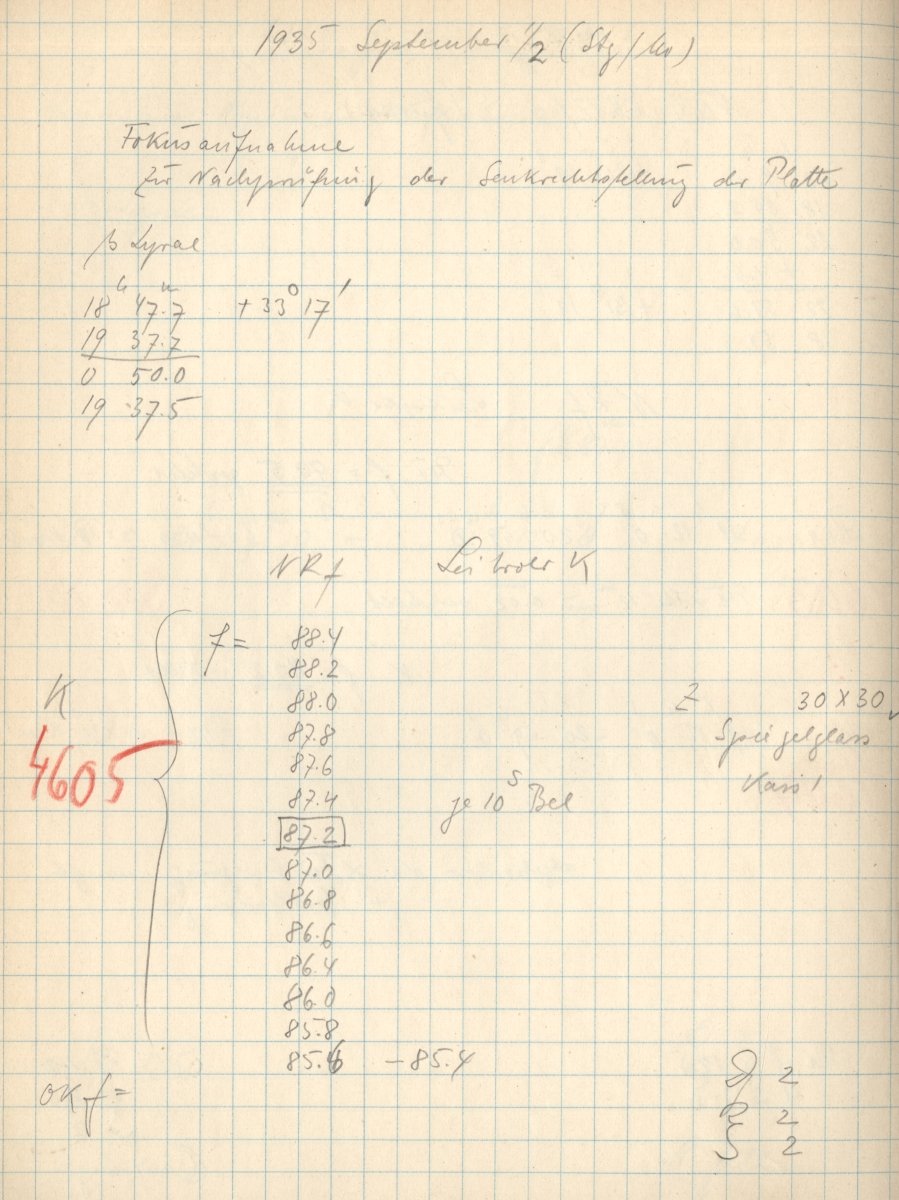 1935 September 1/2 (Stg/Mo)
Fokusaufnahme
Zur Nachprüfung der Senkrechtstellung der Platte
β Lyrae
18h 47m.7 +33° 17'
19 37.7
0 50.0
19 37.5
NR f Leitrohr K
f = 88.4
88.2
88.0
K Z 30 X 30
87.8 Spiegelglass
4605 87.6
Kass!
87.4 je 10s Bel
87.2
87.0
86.8
86.6
86.4
86.0
85.8
85.6 – 85.4
2
OK f =
2
S 2